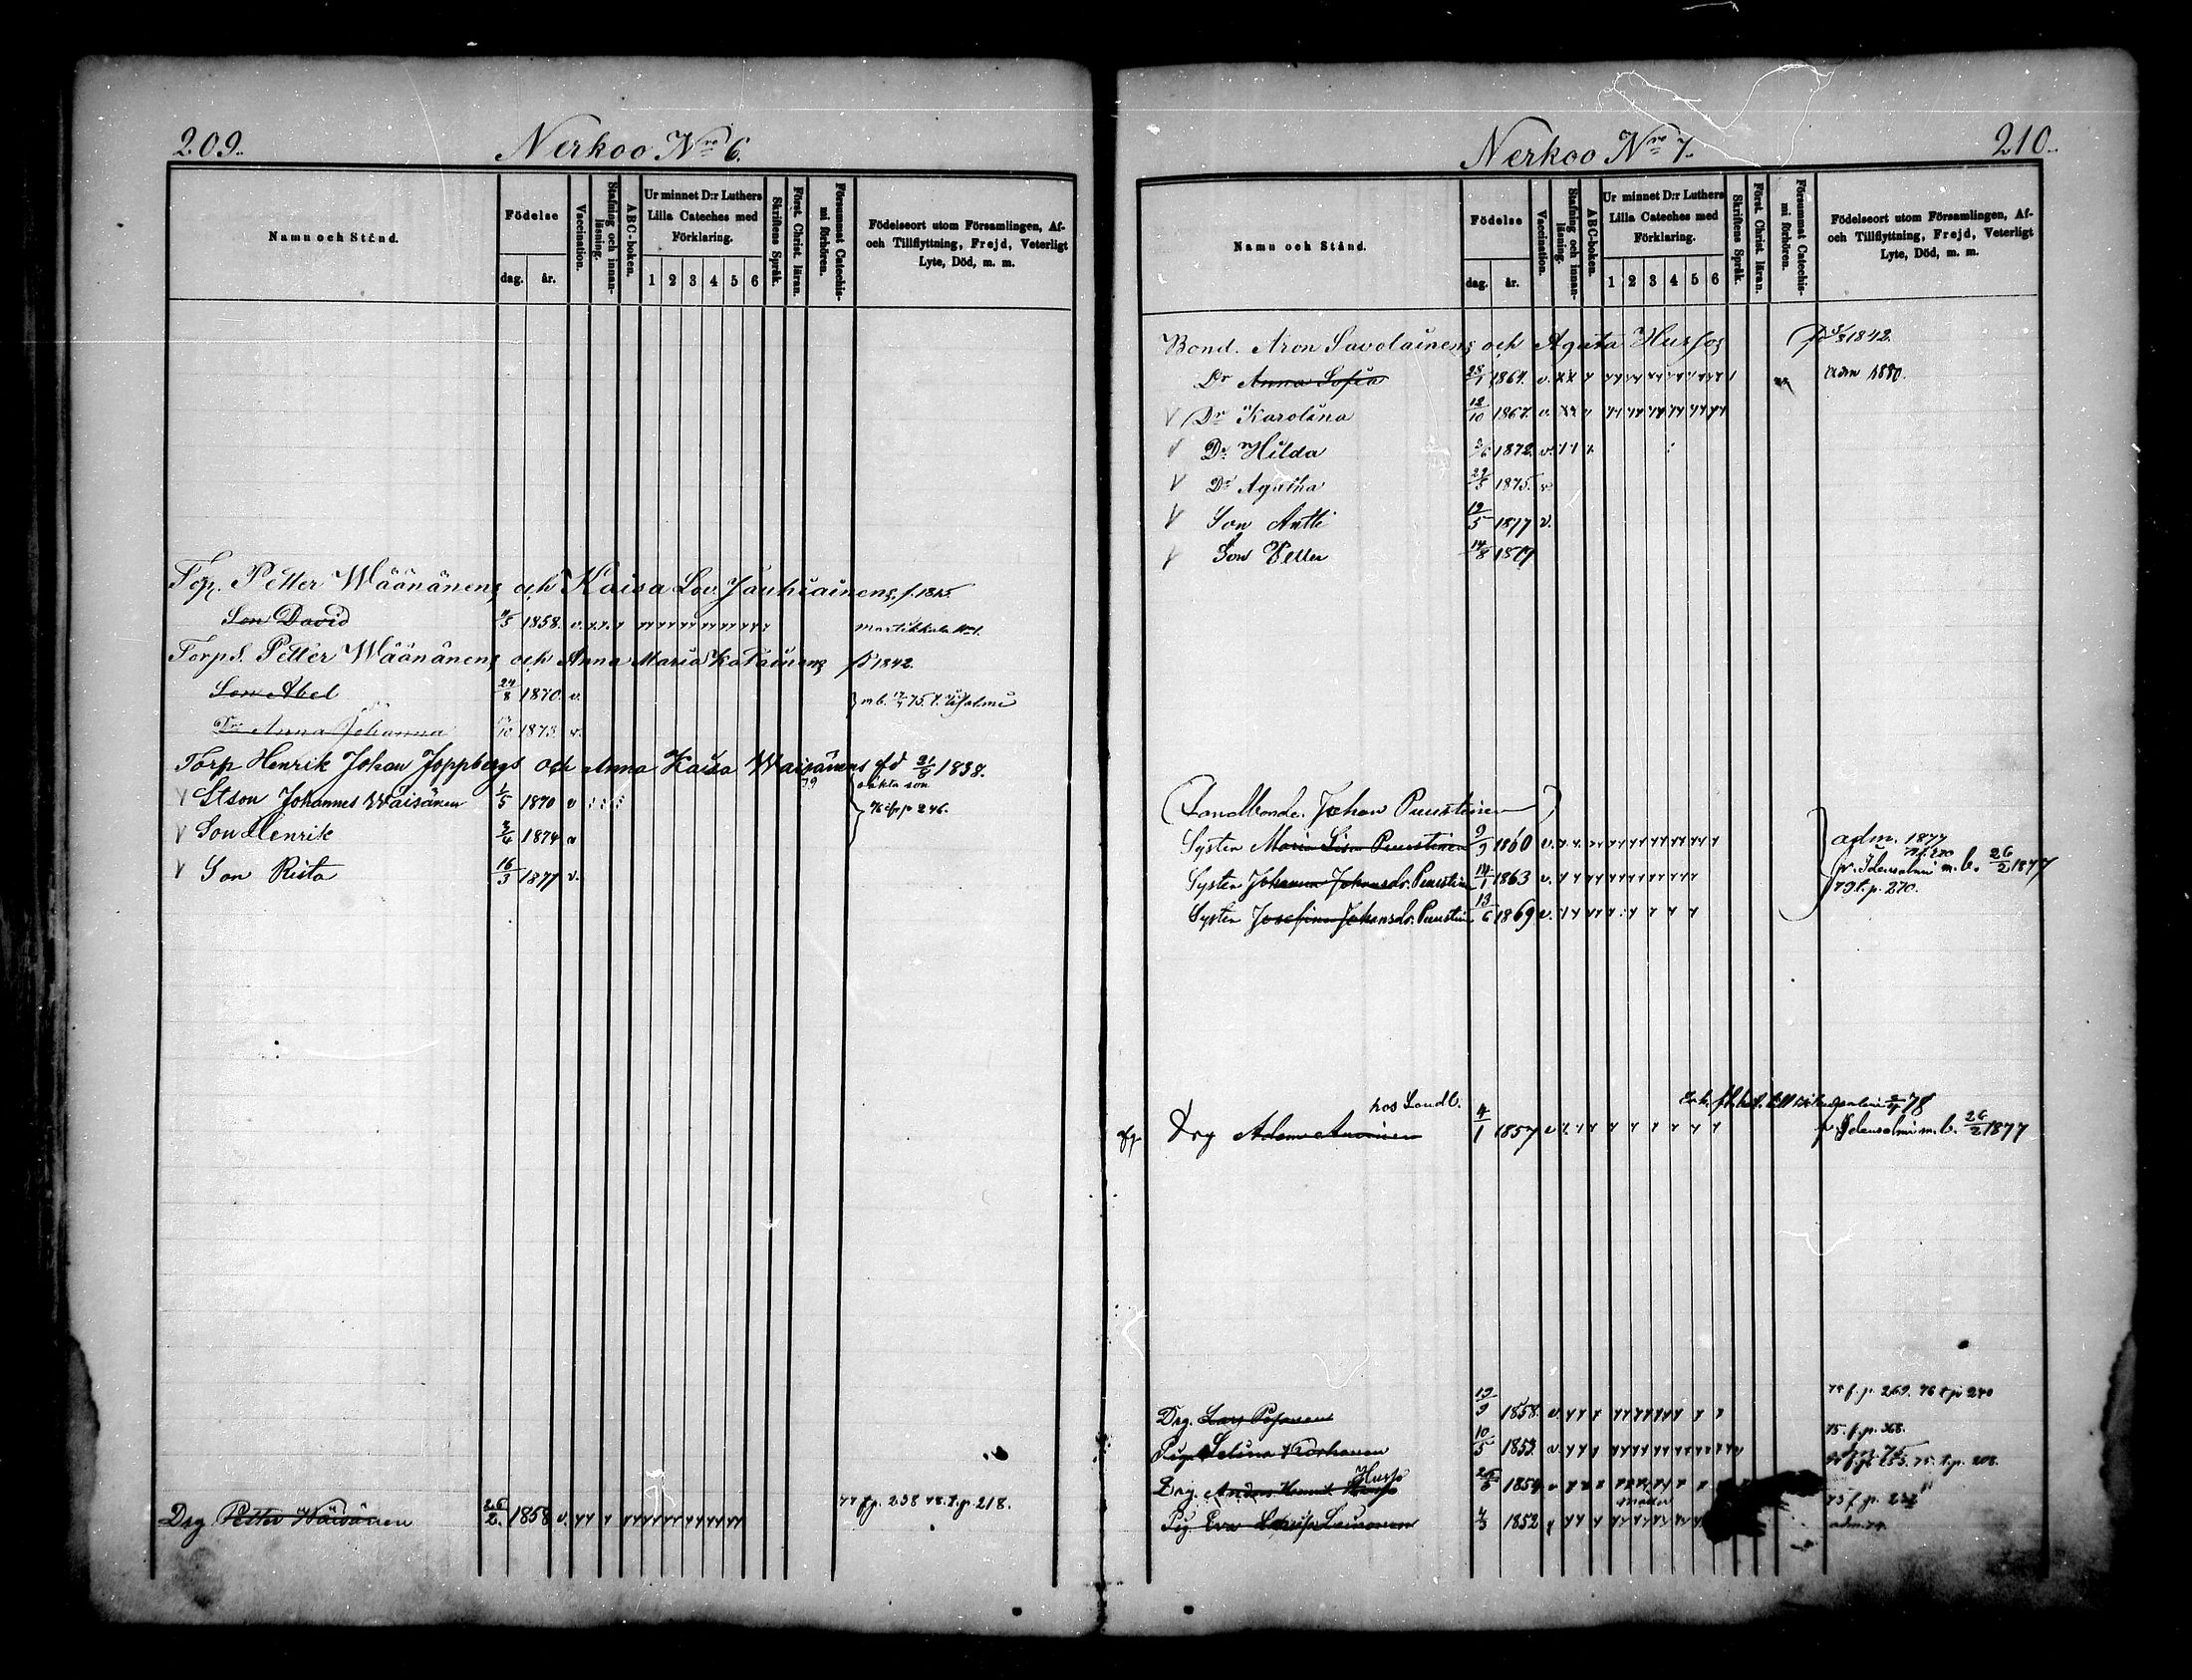 209.
Nerkoo Nro 6.
Namn och Stånd.
Födelse
dag. år.
Vaccination.
Stafning och innanläsning.
ABC-boken.
Ur minnet D:r Luthers Lilla Cateches med Förklaring.
1 2 3 4 5 6
Skriftens Språk.
Först. Christ. läran.
Försummat Catechismi förhören.
Födelseort utom Församlingen, Af- och Tillflyttning, Frejd, Veterligt Lyte, Död, m. m.
Petter Wäänänens och Kaisa Lov. Jauhiainens,
Son David 1858. v.
Torps. Petter Wäänänens och Anna Maria f 1842.
Son Abel 24/8 1870. v.
Dr Anna Johanna 1873. v.
Torp Henrik Johan Joppbergs och Anna Kaisa Waisänens fd 21/8 1838.
V Stson Johannes Waisänen 1/5 1870 v
oäkta son
p 246.
V Son Henrik 1874
V Son Risto 16/3 1877 v.
Drg Petter Wäisänen 26/2. 1858 v. 77 f.p. 238 78. t.p. 218.
210.
Nerkoo Nro 7.
Namn och Stånd.
Födelse
dag. år.
Vaccination.
Stafning och innanläsning.
ABC-boken.
Ur minnet D:r Luthers Lilla Cateches med Förklaring.
1 2 3 4 5 6
Skriftens Språk.
Först. Christ. läran.
Försummat Catechismi förhören.
Födelseort utom Församlingen, Af- och Tillflyttning, Frejd, Veterligt Lyte, Död, m. m.
Bond. Aron Savolainens och Agata Hussos 1842.
Dr Anna Sofia 1864. v. adm 1880.
V Dr Karolina 12/10 1867. v.
V Dr Hilda 1872. v.
V Dr Agatha 29/3 1875. v.
V Son Antti 12/5 1877 v.
V Son Petter 14/8 1879
Landbonde. Johan Puustinen
Syster Maria Lisa Puustinen 9/9 1860 v. adm. 1877
Syster Johanna Johansdr. Puustinen 14/1 1863 v. fr. Idensalmi m. b. 26/2 1877
79 t. p. 270.
Syster Josefina Johansdr. Puustinen 13/6 1869 v.
hos Landb.
Drg Adam 4/1 1857 v fr. Idensalmi m. b. 26/2 1877
Drg. Lars 19/9 1858. v. 75 f. p. 269. 76 t p 240
Pig. Selina Korhonen 10/5 1853. v. 75. f. p. 368.
Drg. Anders Henrik Husso 1854 v 75. t. p. 208.
Pig Eva Lovisa 1852